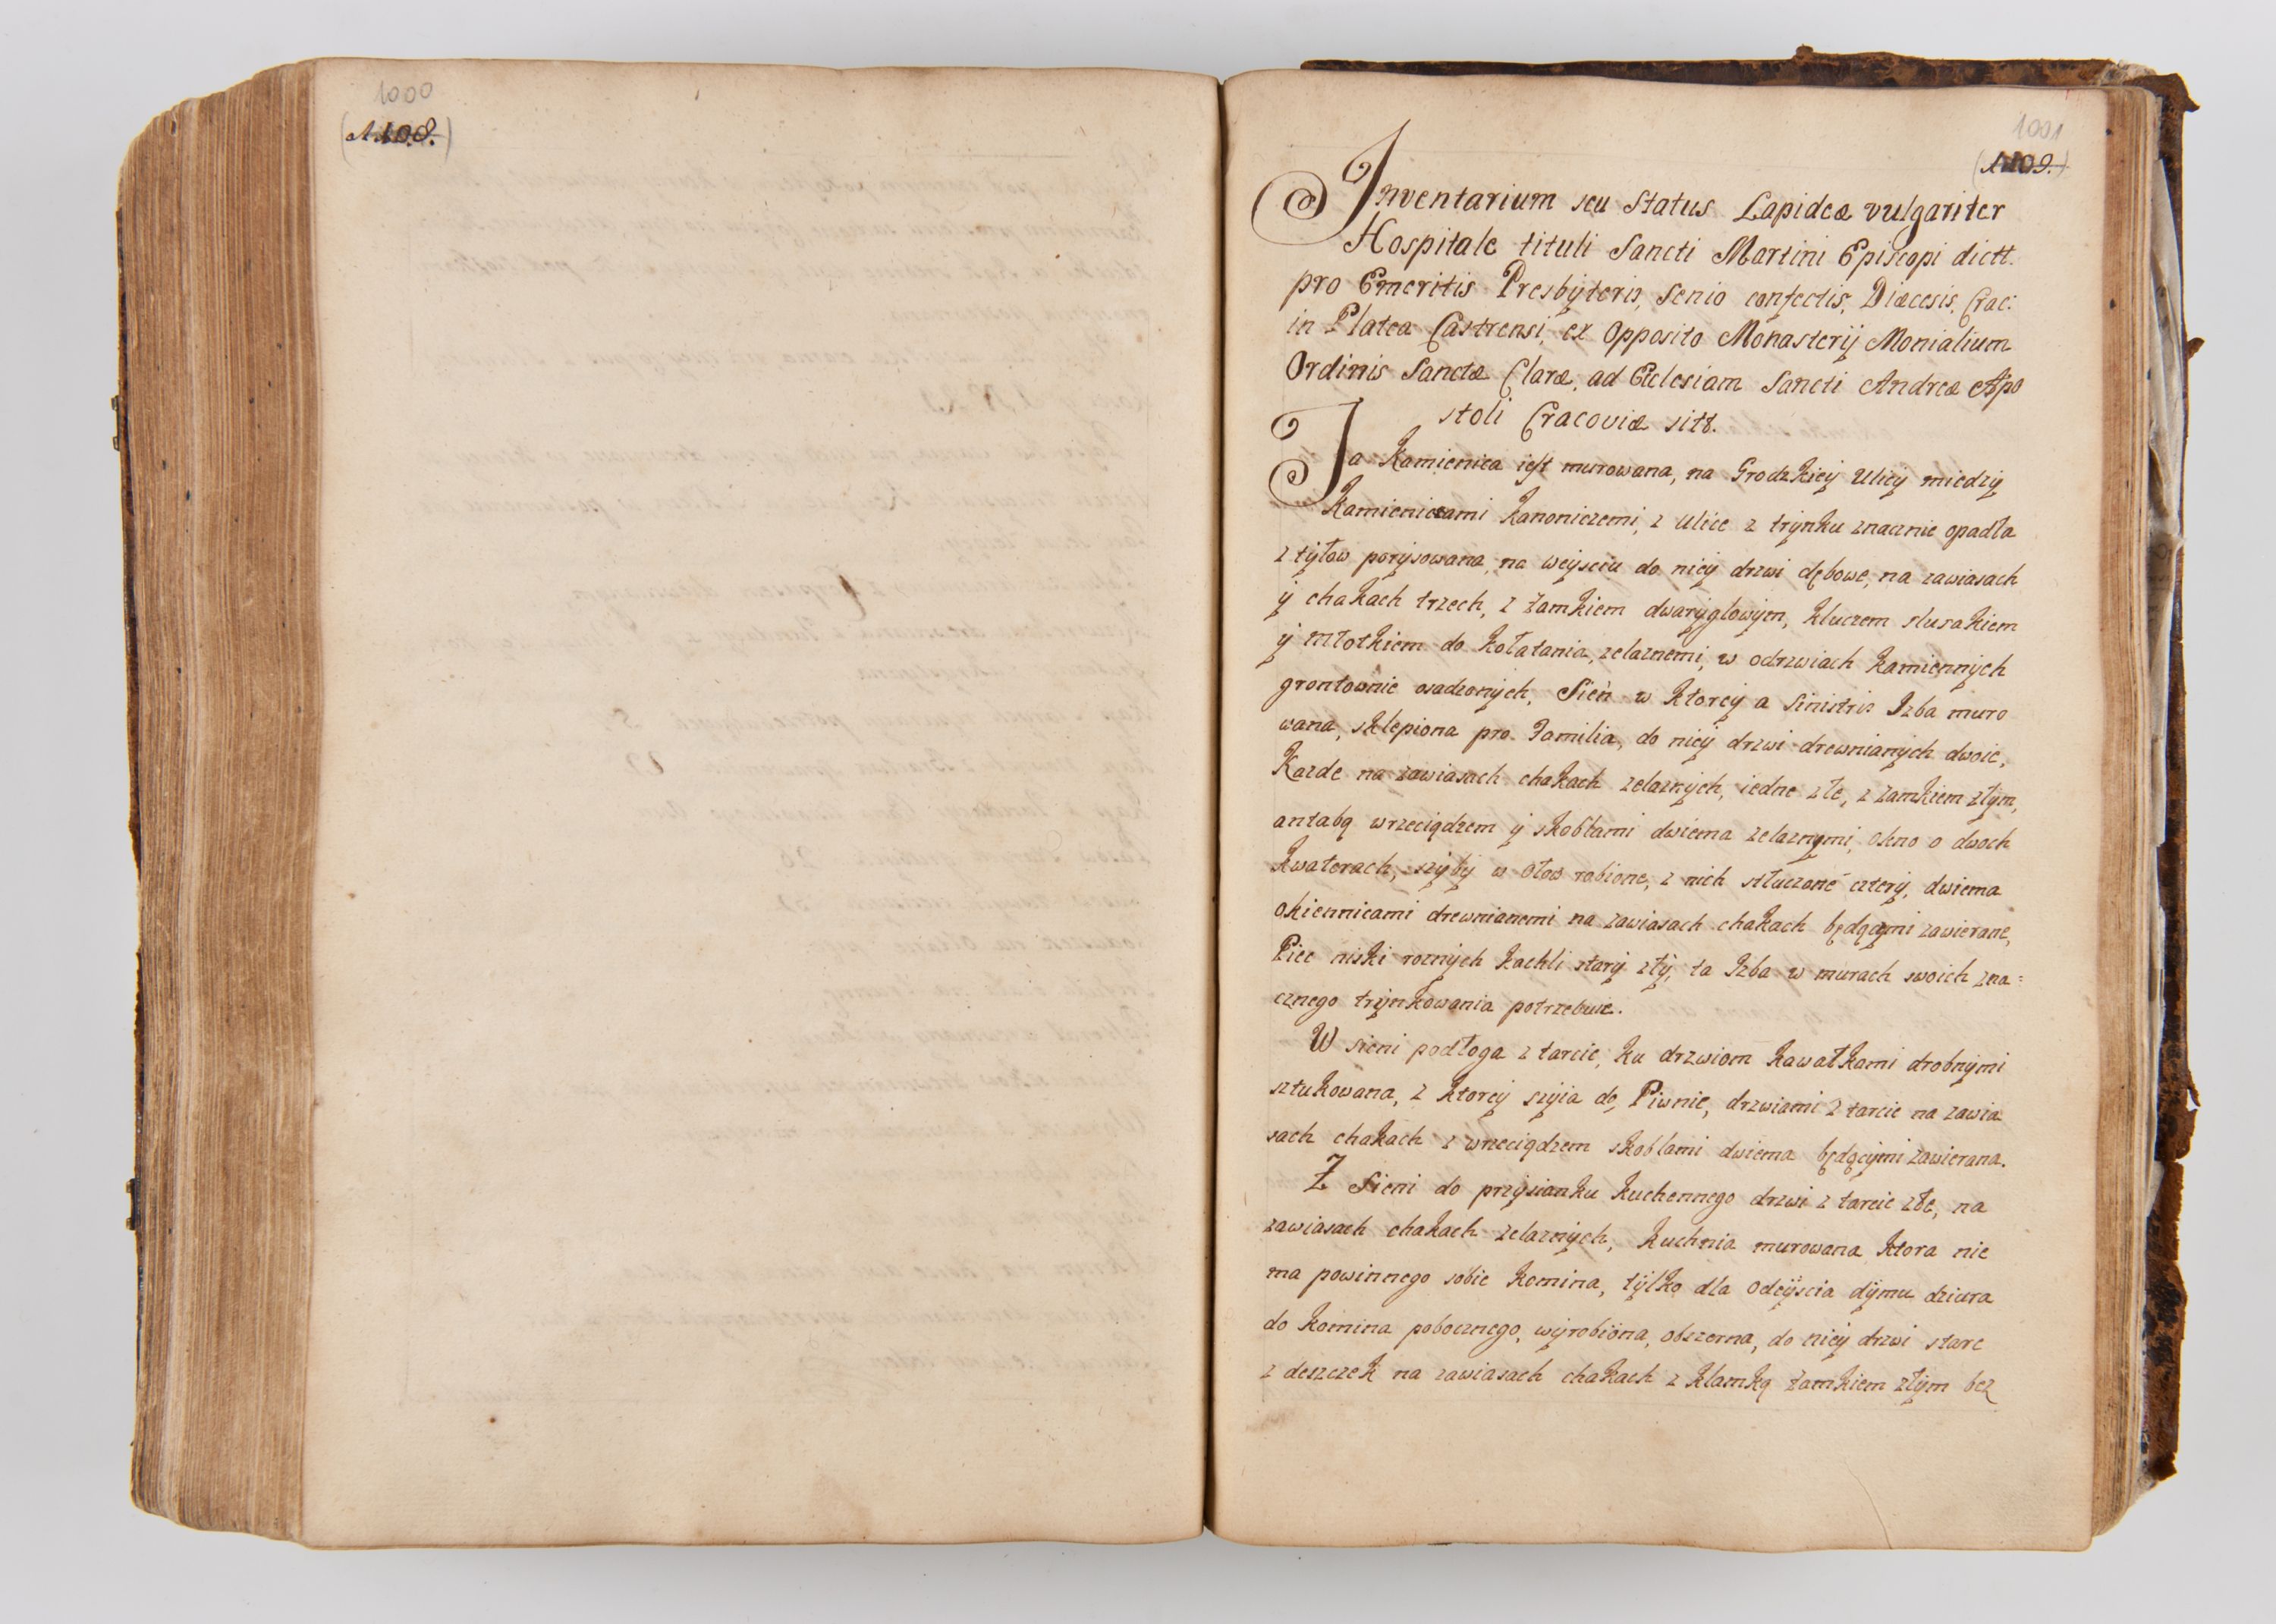 1000
(1108.)
1001
(1109.)
Inventarium seu Status Lapideæ vulgariter
Hospitale tituli Sancti Martini Episcopi dictt.
pro Emeritis Presbyteris, Senio confectis, Diæcesis, Crac:
in Platea Castrensi, ex Opposito Monasterij Monialium
Ordinis Sanctæ Claræ, ad Ecclesiam Sancti Andreæ Apo
stoli Cracoviæ sitt.
Ta Kamienica iest murowana, na Grodzkiey Ulicy miedzy
Kamienicami Kanoniczemi, z Ulice z trynku znacznie opadła
z tyłow porysowana, na weysciu do niey drzwi dębowe, na zawiasach
y chakach trzech, z Zamkiem dwaryglowym, kluczem slusakiem
y Młotkiem do kołatania, zelaznemi, w odrzwiach kamiennych
grontownie osadzonych, Sień w ktorey a Sinistris Izba muro
wana, sklepiona pro Familia, do niey drzwi drewnianych dwoie,
Kazde na zawiasach chakach zelaznych, iedne złe, z zamkiem złym,
antabą wrzeciądzem y skoblami dwiema zelaznymi, Okno o dwoch
kwaterach, szyby w Ołow robione, z nich stłuczone cztery, dwiema
okiennicami drewnianemi na zawiasach chakach będącymi zawierane,
Piec niski roznych kachli stary zły, ta Izba w murach swoich zna=
cznego trynkowania potrzebuie.
W sieni podłoga z tarcic, ku drzwiom kawałkami drobnymi
sztukowana, z ktorey szyia do Piwnic, drzwiami z tarcic na zawia
sach chakach z wrzeciądzem skoblami dwiema będącymi zawierana.
Z Sieni do przysianku kuchennego drzwi z tarcic złe, na
zawiasach chakach zelaznych, kuchnia murowana ktora nie
ma powinnego sobie komina, tylko dla odeyscia dymu dziura
do komina pobocznego, wyrobiona, obszerna, do niey drzwi stare
z deszczek na zawiasach chakach z klamką zamkiem złym bez